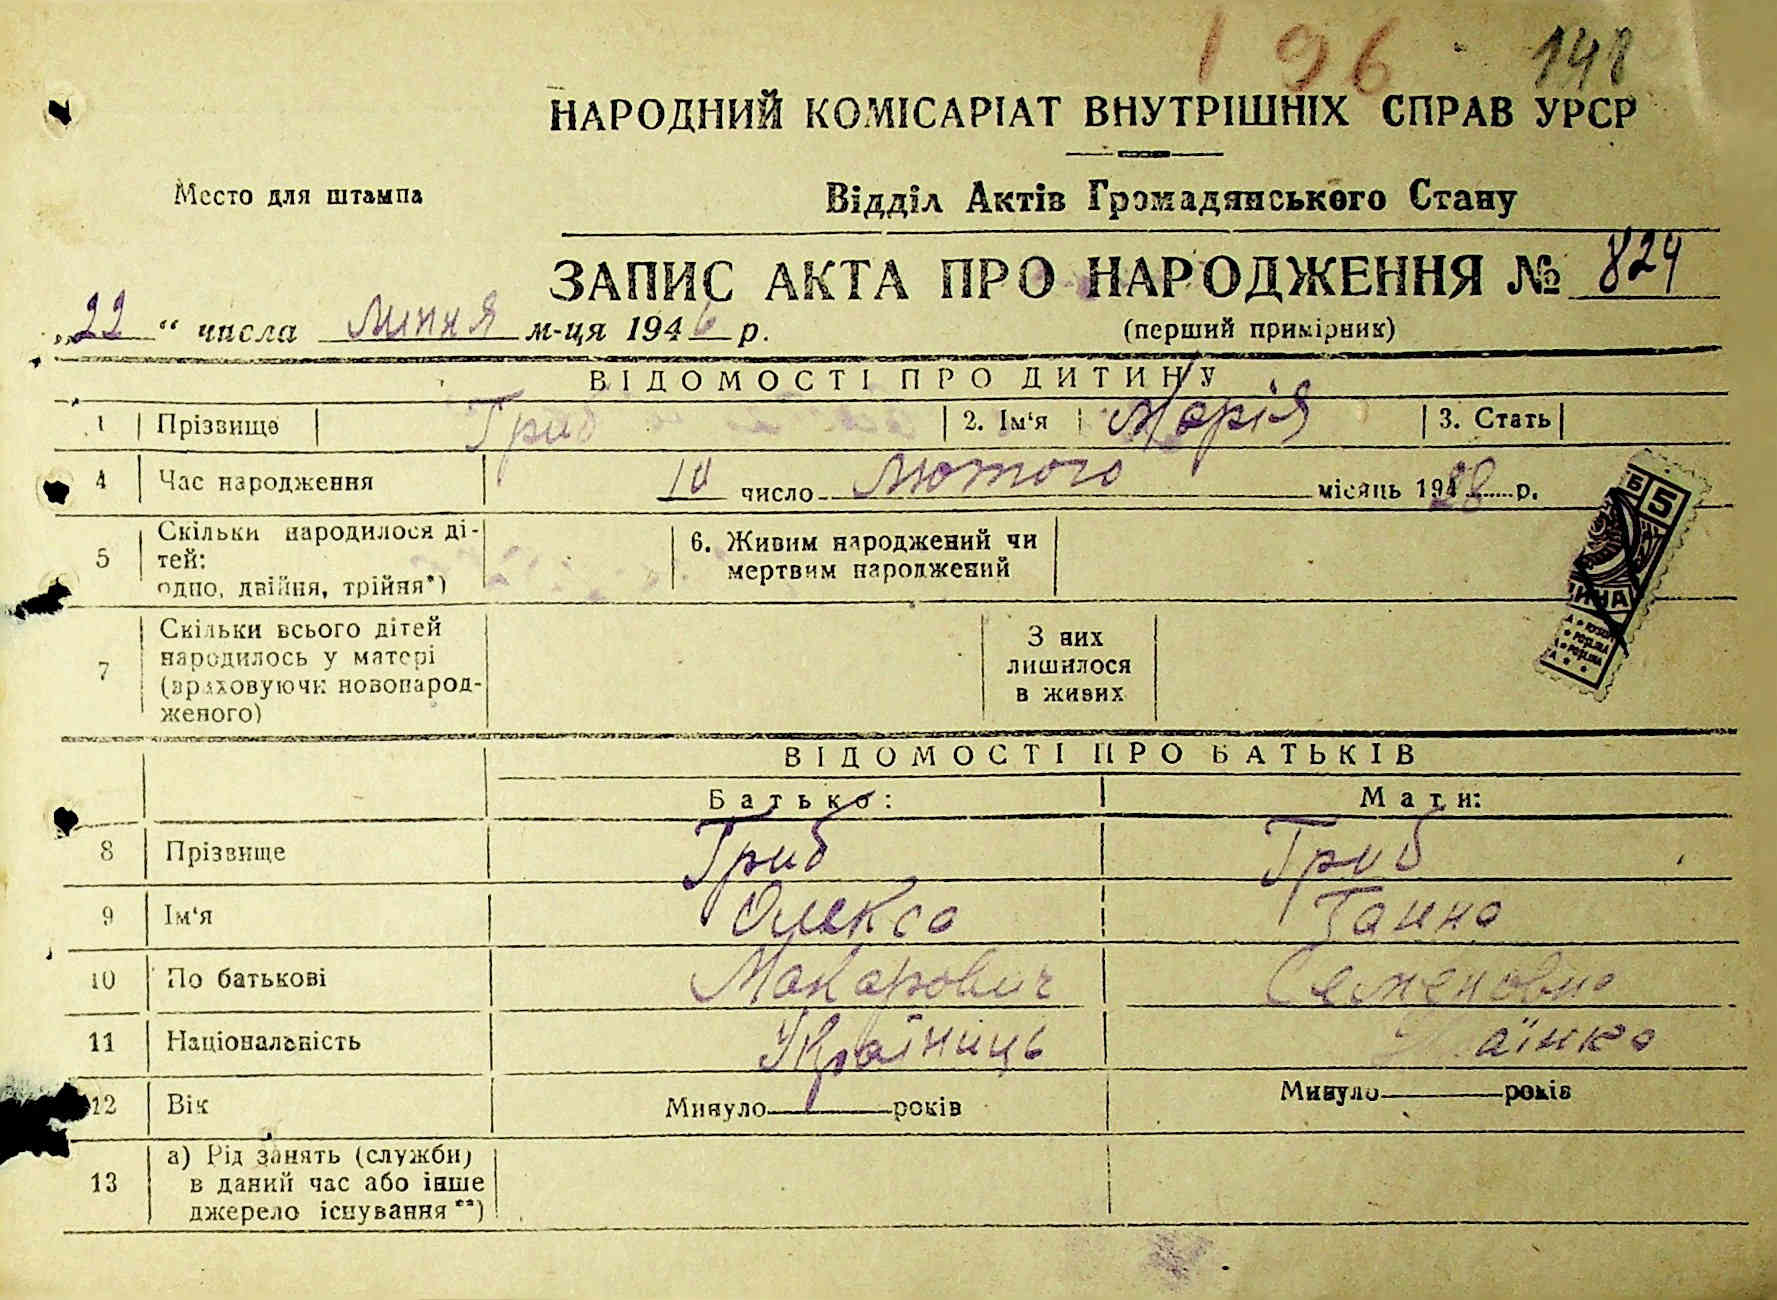 196 148
НАРОДНИЙ КОМІСАРІАТ ВНУТРІШНІХ СПРАВ УРСР
Место для штампа
Відділ Актів Громадянського Стану
ЗАПИС АКТА ПРО НАРОДЖЕННЯ № 824
„22“ числа липня м-ця 1946 р.
(перший примірник)
ВІДОМОСТІ ПРО ДИТИНУ
1 Прізвище Гриб 2. Ім'я Марія 3. Стать
4 Час народження 10 число лютого місяць 1928 р.
5 Скільки народилося ді-
тей:
одно, двійня, трійня*)
6. Живим народжений чи
мертвим народжений
7 Скільки всього дітей
народилось у матері
(враховуючи новонарод-
женого)
З них
лишилося
в живих
Б 5
ВІДОМОСТІ ПРО БАТЬКІВ
Батько: Мати:
8 Прізвище Гриб Гриб
9 Ім'я Олекса Ганна
10 По батькові Макарович Семеновна
11 Національність Українець аїнка
12 Вік Минуло років Минуло років
13 а) Рід занять (служби)
в даний час або інше
джерело існування **)